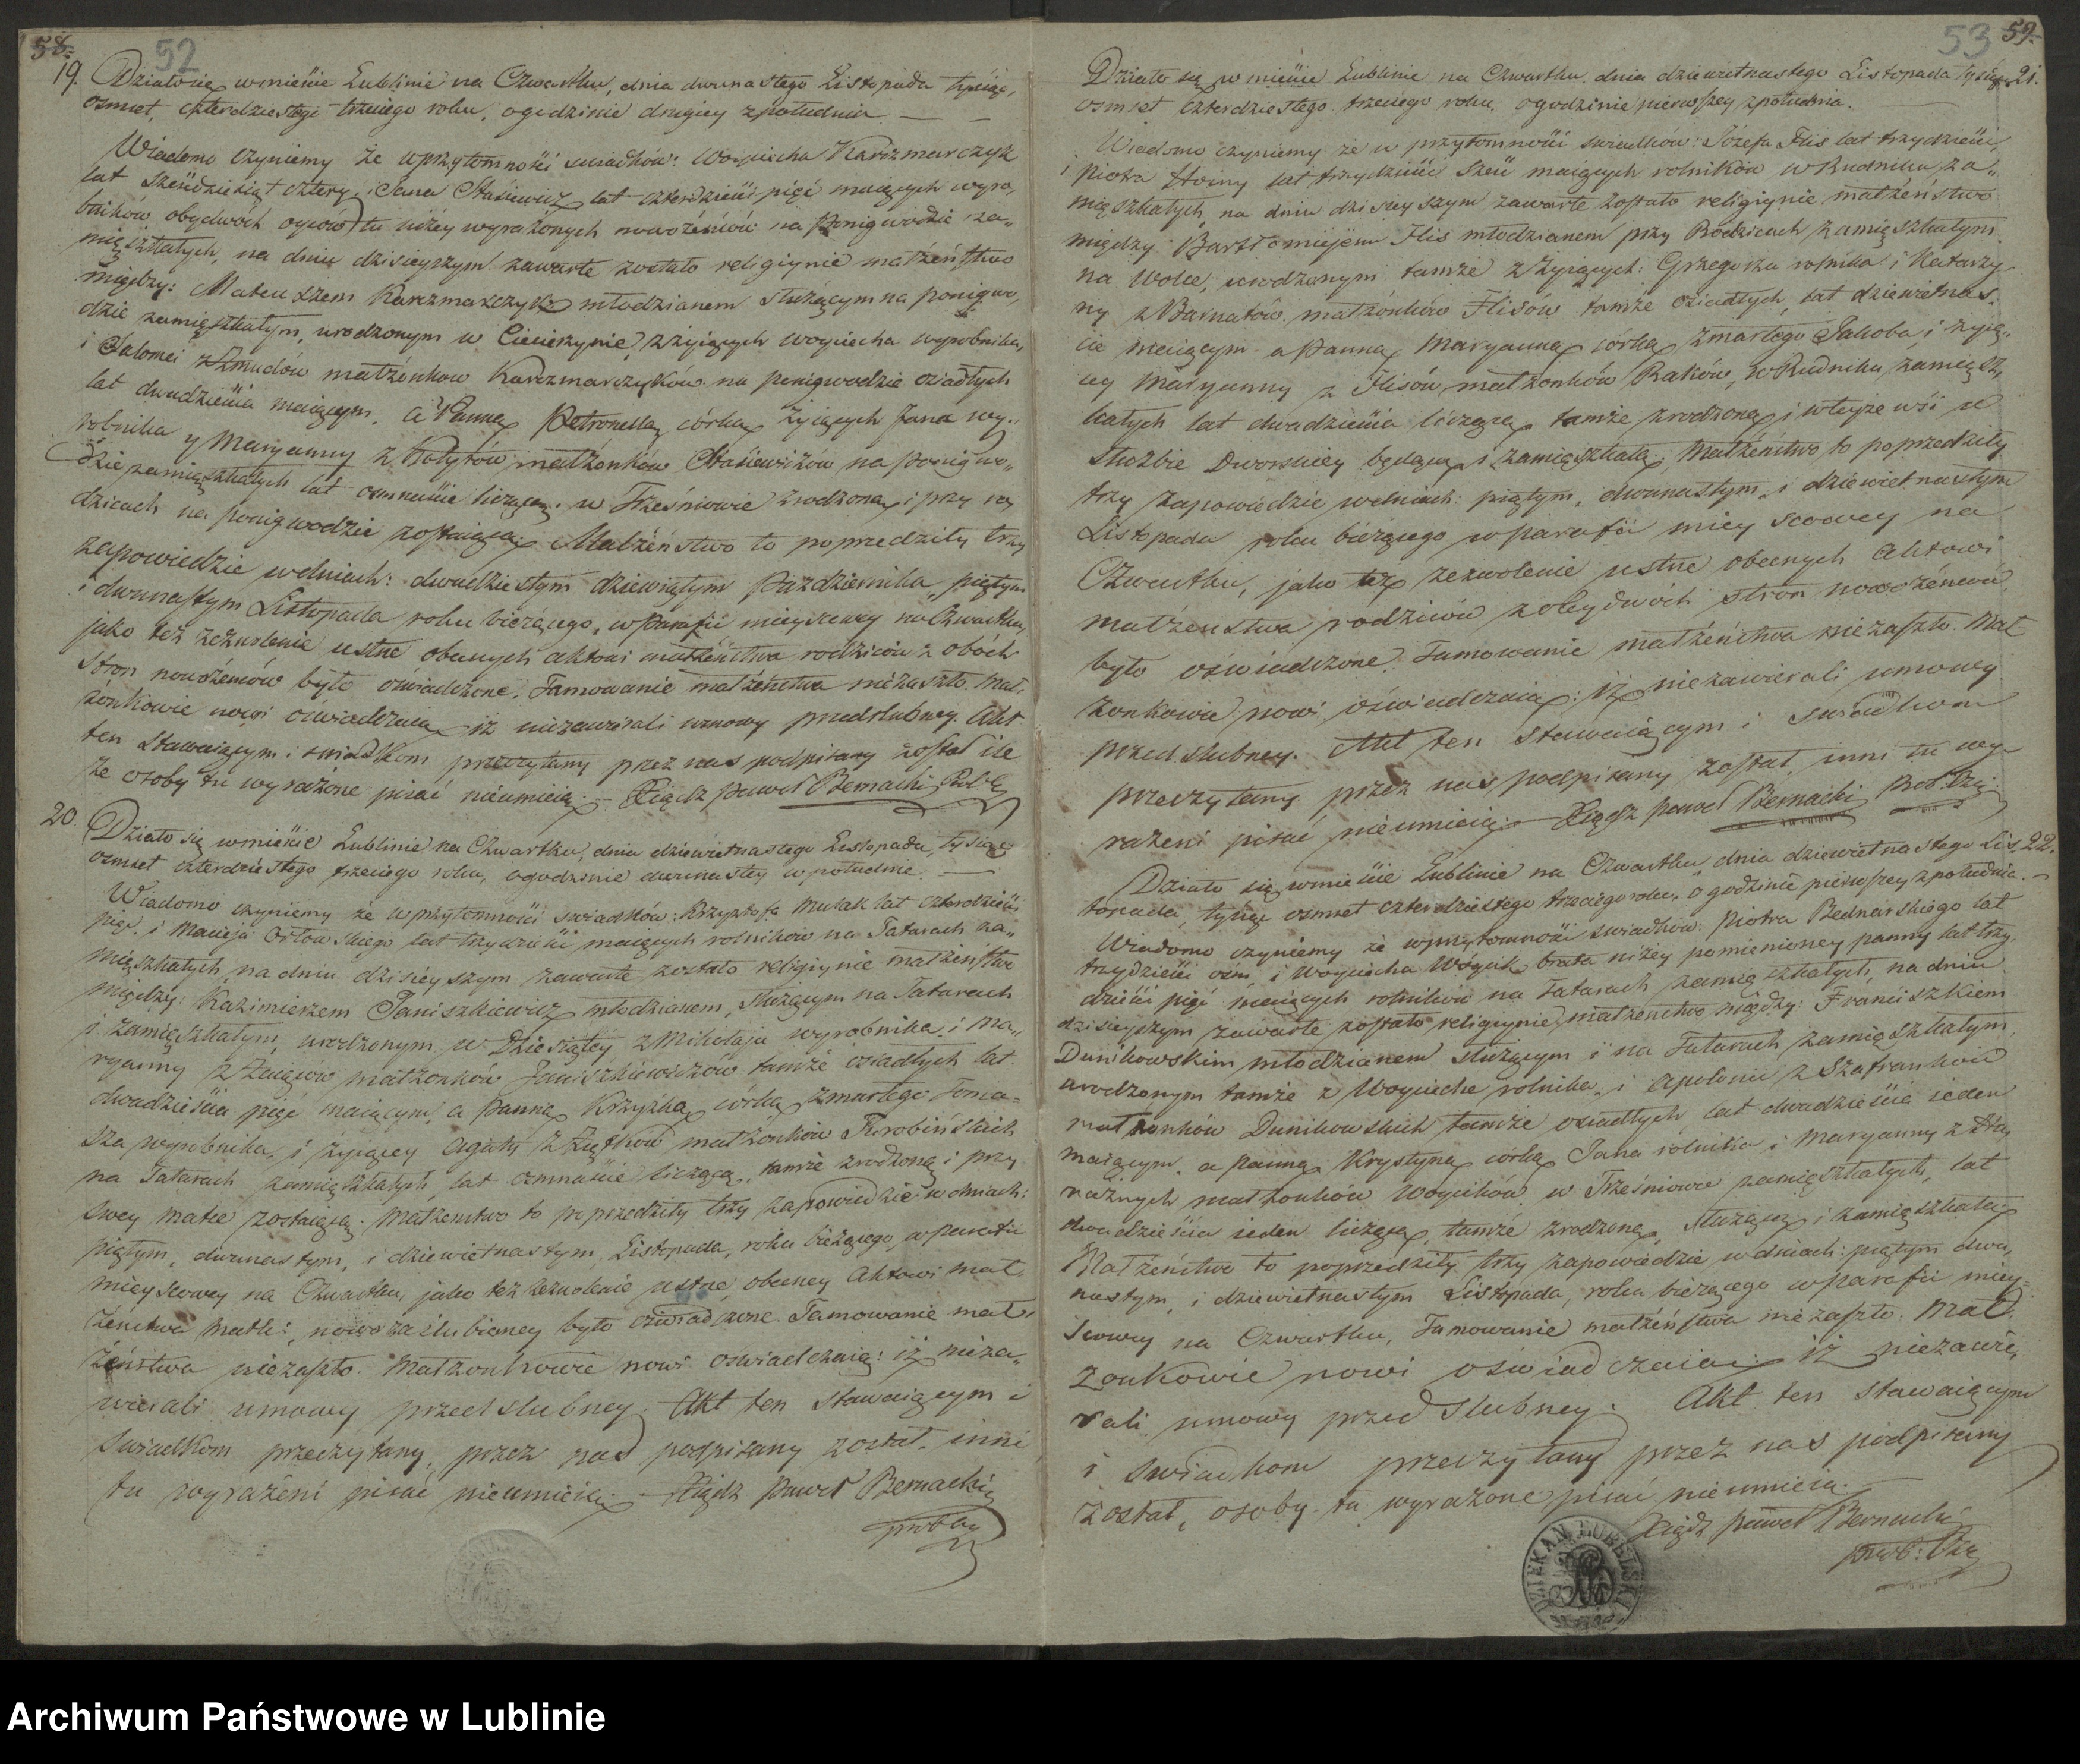 58.
52
19. Działo się w mieście Lublinie na Czwartku, dnia dwunastego Listopada tysiąc,
ośmset, czterdziestego trzeciego roku, o godzinie drugiey z południa
Wiadomo czyniemy że w przytomności świadków: Woyciecha Karczmarczyk
lat sześdziesiąt cztery, i Jana Stasiewicz lat czterdzieści pięć maiących wyro„
bników obydwóch oyców tu niżey wyrażonych nowożeńców na Ponigwodzie za„
mięszkałych, na dniu dzisieyszym zawarte zostało religiynie małżeństwo
między: Mateuszem Karczmarczyk młodzianem służącym na ponigwo,
dzie zamięszkałym, urodzonym w Ciecierzynie, z żyiących Woyciecha wyrobnika,
i Salomei z Żmudów małżonków Karczmarczyków na ponigwodzie osiadłych
lat dwadzieścia maiącym, a Panną Petronellą córką żyiących Jana wy„
robnika y Maryanny z Kotyrów małżonków Stasiewiczów na ponigwo„
dzie zamięszkałych lat osmnaście liczącą, w Trześniowie zrodzoną i przy ro„
dzicach na ponigwodzie zostaiącą. Małżeństwo to poprzedziły trzy
zapowiedzie w dniach: dwudziestym dziewiątym Października, piątym
i dwunastym Listopada roku bieżącego, w Parafii mieyscowey na Czwartku,
jako też zezwolenie ustne obecnych aktowi małżeństwa rodziców z obóch
stron nowożeńców było oświadczone. Tamowanie małżeństwa niezaszło. Mał„
żonkowie nowi oświadczaią iż niezawierali umowy przedślubney. Akt
ten stawaiącym i świadkom przeczytany przez nas podpisany został ile
że osoby tu wyrażone pisać nieumieią. Xiądz Paweł Bernacki
20. Działo się w mieście Lublinie na Czwartku, dnia dziewietnastego Listopada, tysiąc
ośmset czterdziestego trzeciego roku, o godzinie dwunastey w południe.
Wiadomo czyniemy że w przytomności świadków: Krzysztofa Mulak lat czterdzieści
pięć i Macieja Orłowskiego lat trzydzieści maiących rolników na Tatarach za„
mięszkałych, na dniu dzisieyszym zawarte zostało religiynie małżeństwo
między: Kazimierzem Janiszkiewicz młodzianem, służącym na Tatarach
i zamięszkałym, urodzonym w Dziesiątey z Mikołaja wyrobnika i Ma„
ryanny z Zaięcow małżonków Janiszkiewiczów tamże osiadłych lat
dwadzieścia pięć maiącym, a Panną Krzyżką córką zmarłego Toma=
sza wyrobnika, i żyiącey Agaty z Ziętków małżonków Turobińskich
na Tatarach zamięszkałych, lat osmnaście liczącą, tamże zrodzoną i przy
swey matce zostaiącą. Małżeństwo to poprzedziły trzy zapowiedzie w dniach:
piątym, dwunastym, i dziewietnastym Listopada, roku bieżącego, w parafii
mieyscowey na Czwartku, jako też zezwolenie ustne, obecney Aktowi mał„
żeństwa Matki, nowozaślubioney było oświadczone. Tamowanie mał„
żeństwa niezaszło. Małżonkowie nowi oświadczaią: iż nieza„
wierali umowy przedślubney. Akt ten stawaiącym i
świadkom przeczytany, przez nas podpisany został, inni
tu wyrażeni pisać nieumieią. Xiądz Paweł Bernacki
53
59.
21. Działo się w mieście Lublinie na Czwartku, dnia dziewietnastego Listopada tysiąc
ośmset czterdziestego trzeciego roku, o godzinie pierwszey z południa.
Wiadomo czyniemy że w przytomności świadków: Józefa Flis lat trzydzieści,
i Piotra Hoiny lat trzydzieści sześć maiących rolników w Rudniku za„
mięszkałych, na dniu dzisieyszym zawarte zostało religiynie małżeństwo
między: Bartłomiejem Flis młodzianem przy Rodzicach zamięszkałym
na Wolce, urodzonym tamże z żyiących: Grzegorza rolnika i Katarzy
ny z Barnatów małżonków Flisów tamże osiadłych, lat dziewietnas„
cie maiącym a Panną Maryanną córką zmarłego Jakoba i żyią„
cey Maryanny z Flisów małżonków Raków, w Rudniku zamięsz„
kałych lat dwadzieścia liczącą tamże zrodzoną, i w teyże wsi w
służbie Dworskiey będącą i zamięszkałą. Małżeństwo to poprzedziły
trzy zapowiedzie w dniach: piątym, dwunastym, i dziewietnastym
Listopada roku bieżącego w parafii mieyscowey na
Czwartku, jako też zezwolenie ustne obecnych Aktowi
małżeństwa rodziców z obydwóch stron nowożeńców
było oświadczone. Tamowanie małżeństwa niezaszło. Mał
żonkowie nowi oświadczaią: iż niezawierali umowy
przedślubney. Akt ten stawaiącym i świadkom
przeczytany przez nas podpisany został, inni tu wy„
rażeni pisać nieumieią. Xiądz Paweł Bernacki
22. Działo się w mieście Lublinie na Czwartku, dnia dziewietnastego Lis„
topada, tysiąc ośmset czterdziestego trzeciego roku, o godzinie pierwszey z południa.
Wiadomo czyniemy że w przytomności świadków: Piotra Bednarskiego lat
trzydzieści ośm i Woyciecha Wóycik brata niżey pomienioney panny lat trzy
dzieści pięć maiących rolników na Tatarach zamięszkałych, na dniu
dzisieyszym zawarte zostało religiynie małżeństwo między: Franciszkiem
Dunikowskim młodzianem służącym i na Tatarach zamięszkałym
urodzonym tamże z Woyciecha rolnika, i Apolonii z Szafranków
małżonków Dunikowskich tamże osiadłych, lat dwadzieścia ieden
maiącym, a Panną Krystyną córką Jana rolnika i Maryanny z
małżonków Woycików, w Trześniowie zamięszkałych, lat
dwadzieścia ieden liczącą, tamże zrodzoną, służącą i zamięszkałą
Małżeństwo to poprzedziły trzy zapowiedzie w dniach: piątym dwu„
nastym, i dziewietnastym Listopada, roku bieżącego w parafii miey=
scowey na Czwartku, Tamowanie małżeństwa niezaszło. Mał„
żonkowie nowi oświadczaią: iż niezawie„
rali umowy przedślubney. Akt ten stawaiącym
i świadkom przeczytany przez nas podpisany
został, osoby tu wyrażone pisać nieumieią.
Xiądz Paweł Bernacki
Archiwum Państwowe w Lublinie